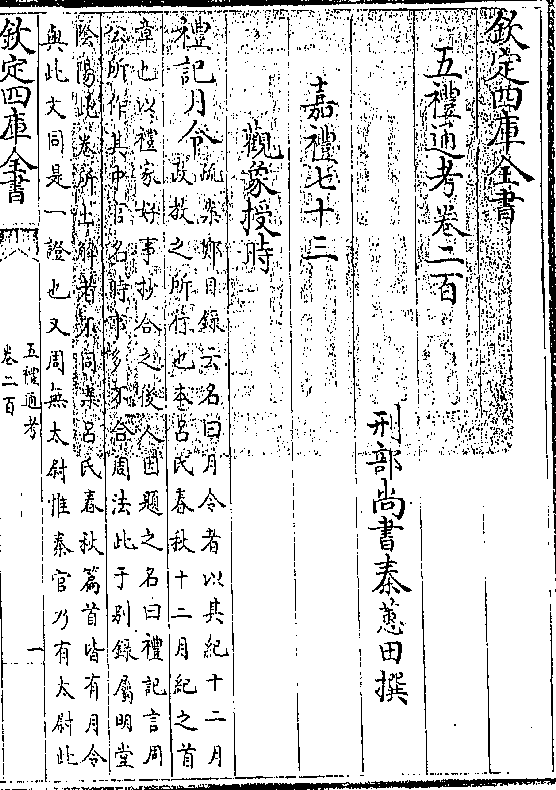 欽定四庫全書
五禮通考卷二百
刑部尚書秦蕙田撰
嘉禮七十三
觀象授時
禮記月令
疏案鄭目錄云名曰月令者以其紀十二月
政教之所行也本呂氏春秋十二月紀之首
章也以禮家好事抄合之後人因題之名曰禮記言周
公所作其中官名時事多不合周法此于别錄屬明堂
陰陽此卷所出解者不同案呂氏春秋篇首皆有月令
與此文同是一證也又周無太尉惟秦官乃有太尉此
欽定四庫全書
五禮通考
卷二百
一